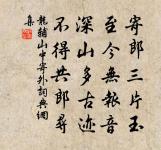 寄郎三片玉
至今無報音
深山多古迹
不得共郎尋
龍輔山中寄外詞典網
集